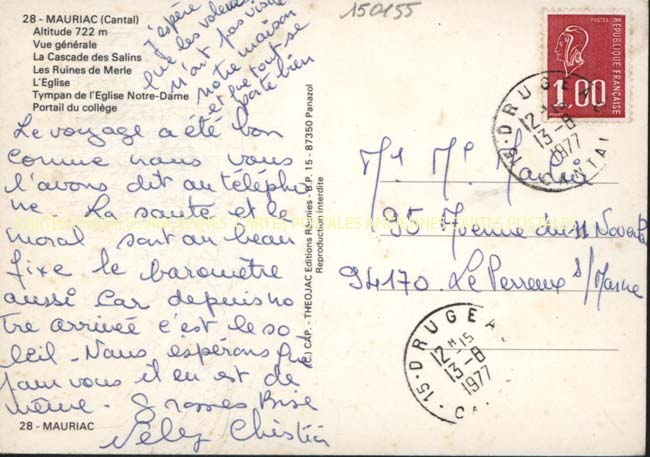 28 - MAURIAC (Cantal)
Altitude 722 m
Vue générale
La Cascade des Salins
Les Ruines de Merle
L'Eglise
Tympan de l'Eglise Notre-Dame
Portail du collège
J'espère
que les voleurs
n'ont pas visité
notre maison
et que tout se
porte bien
Le voyage a été bon
comme nous vous
l'avons dit au télépho
ne. La santé et le
moral sont au beau
fixe le baromètre
aussi car depuis no
tre arrivée c'est le so
leil. Nous espérons que
pour vous il en est de
même. Grosses Bise
Christian
28 - MAURIAC
(C) CAP. - THEOJAC Editions Réunies - B.P. 15 - 87350 Panazol
Reproduction interdite
150155
POSTES
REPUBLIQUE FRANÇAISE
1,00
15 - DRUGEA
12H15
13-8
1977
CANTAL
Mr Mme
95 Avenue du 11 Novembre
94170 Le Perreux s/Marne
15 - DRUGEA
12H15
13-8
1977
CA
CARTES POSTALES ANCIENNES CARTES POSTALES